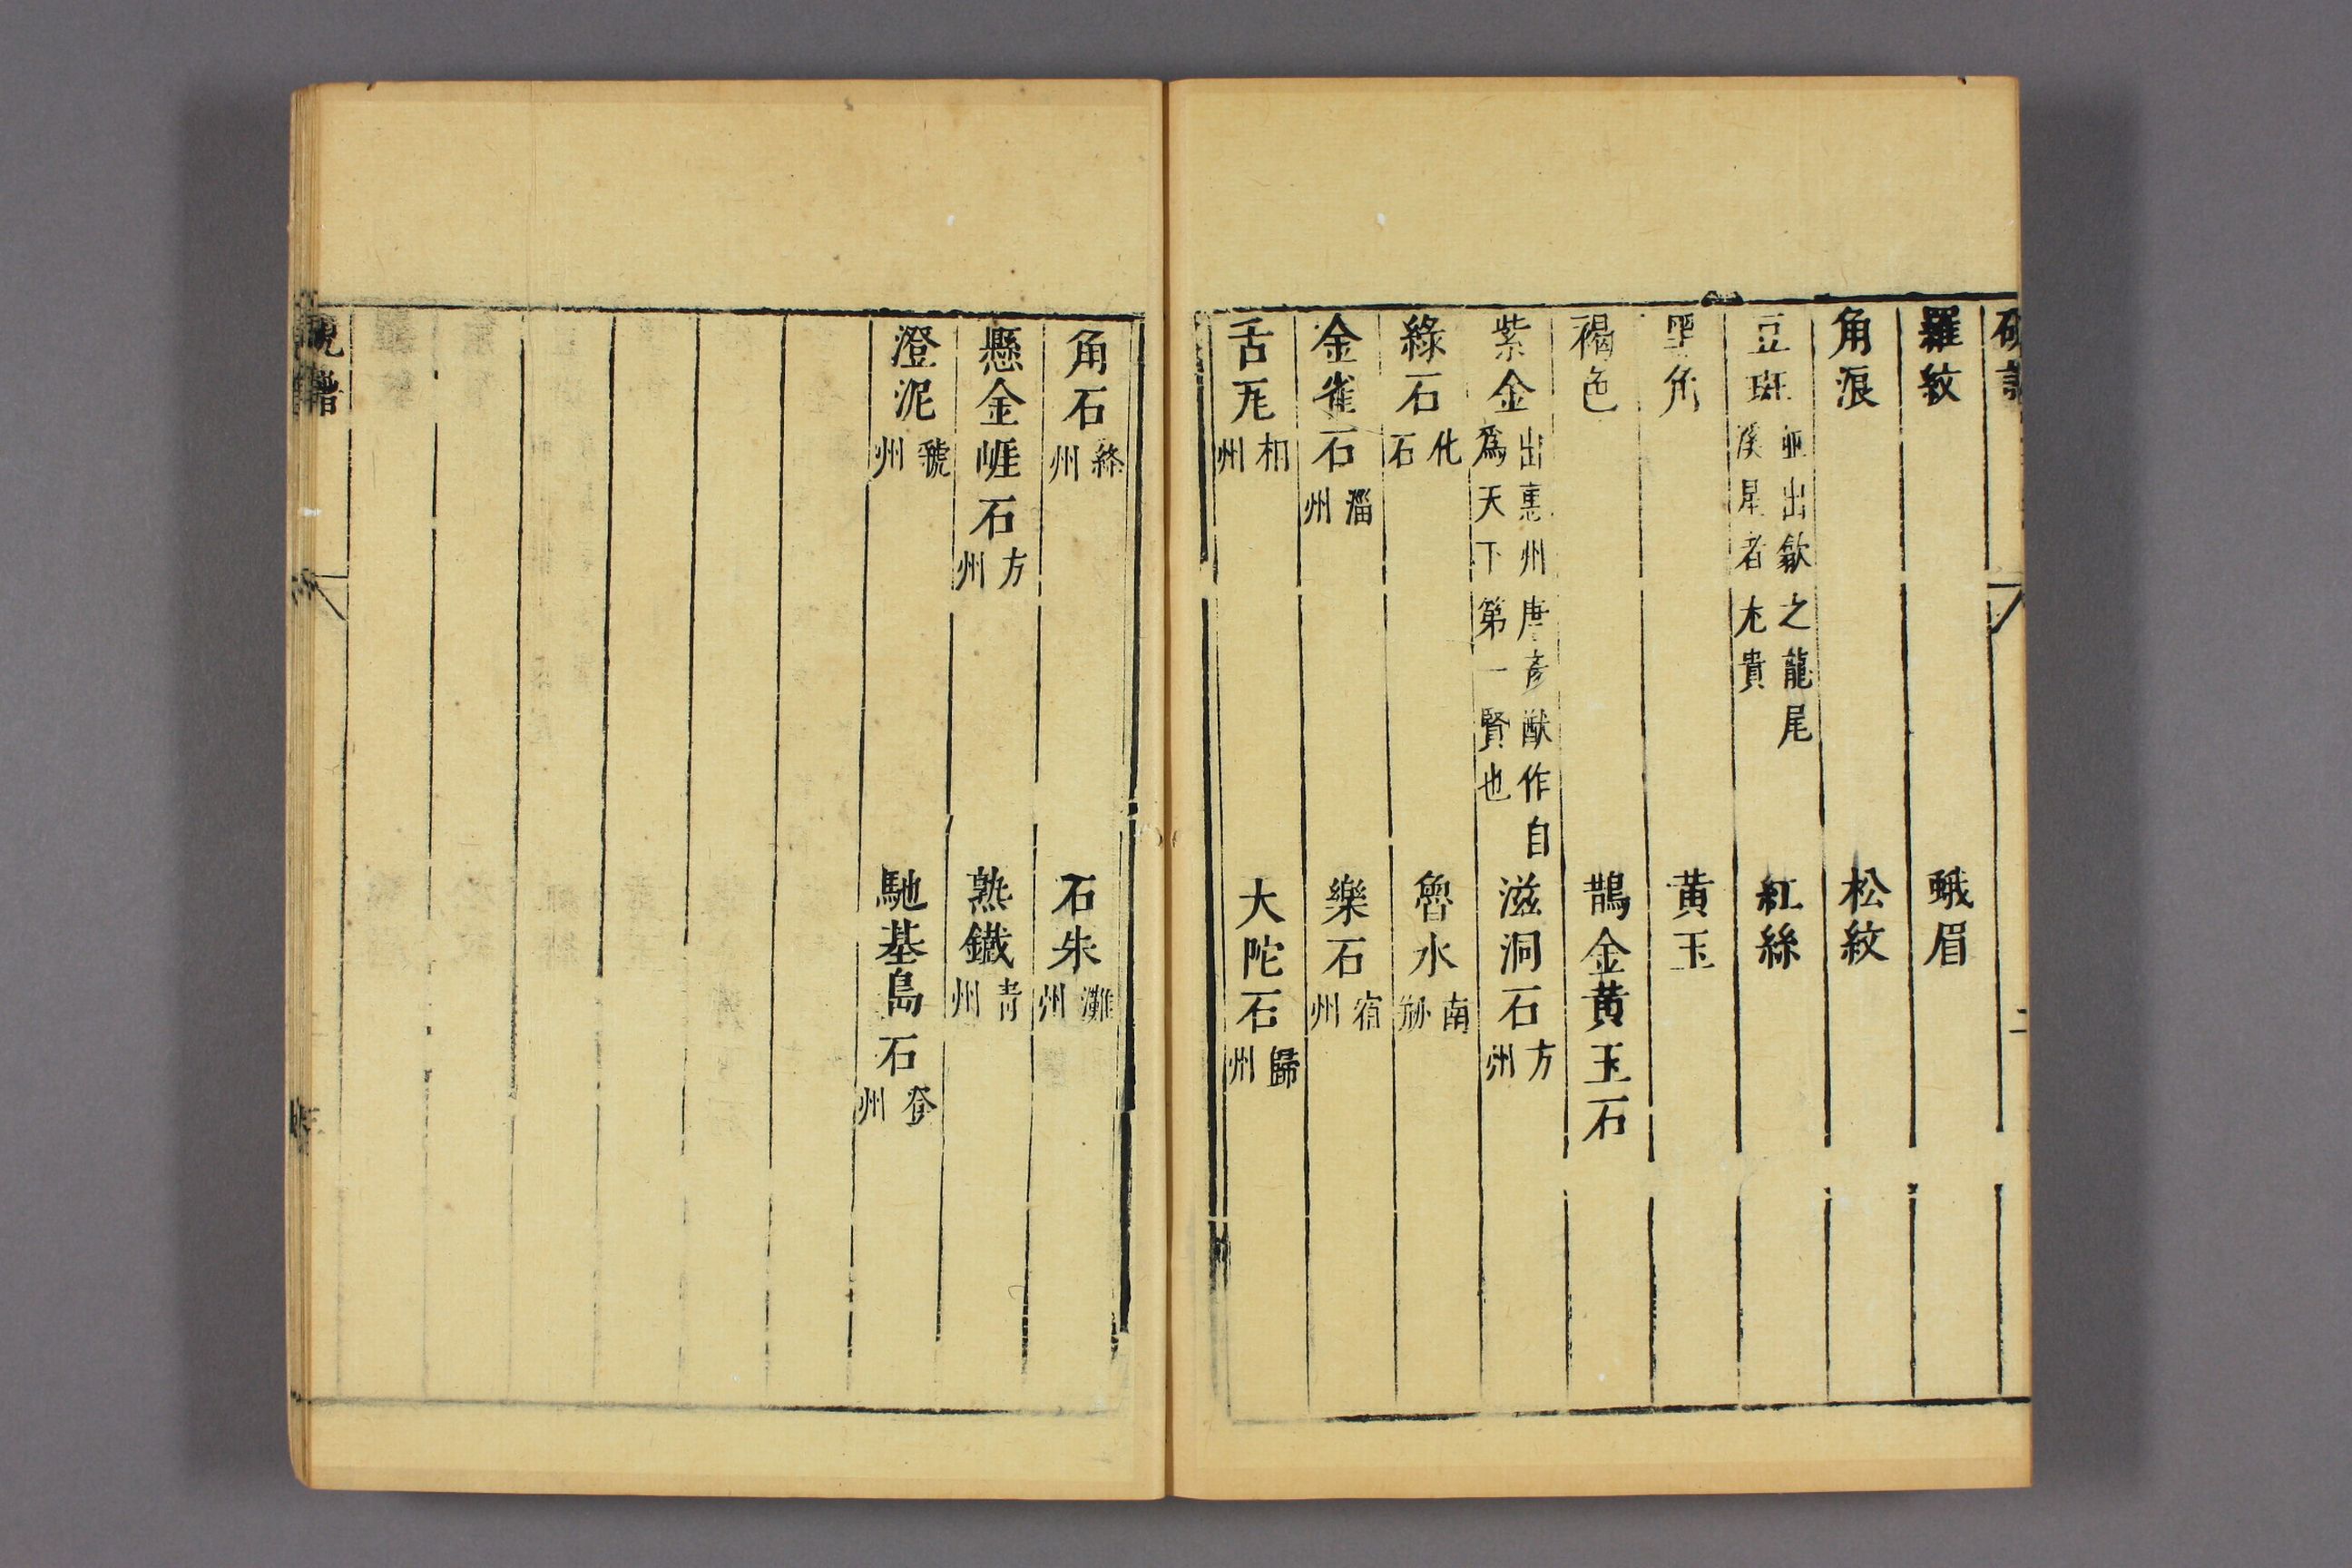 羅紋 蛾眉
角浪 松紋
豆斑 出歙之龍尾溪星者尤貴 紅絲
黑角 黄玉
褐色 鵲金黄玉石
紫金 出惠州唐彥猷作自爲天下第一賢也 滋洞石 方州
綠石 化石 魯水 南劒
金雀石 淄州 樂石 宿州
舌瓦 相州 大陀石 歸州
角石 絳州 石朱 濰州
懸金崕石 方州 熟鐵 青州
澄泥 虢州 馳基島石 登州
硯譜